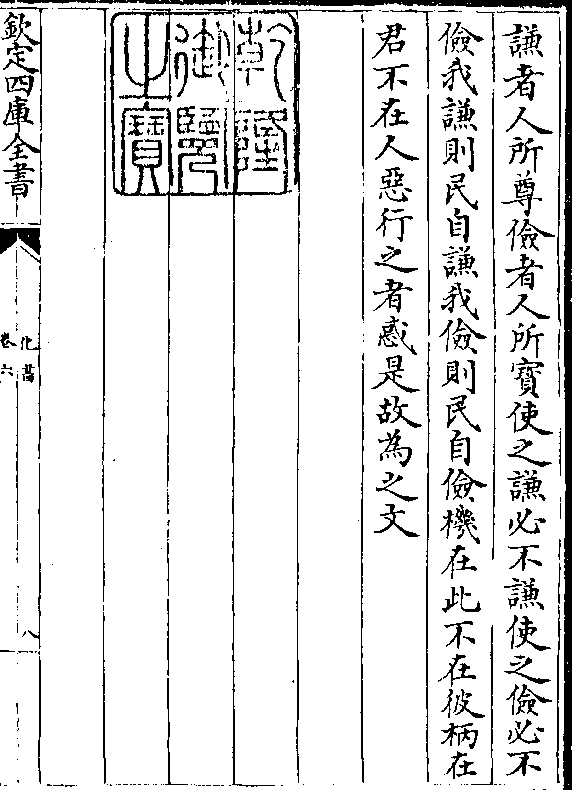 謙者人所尊儉者人所寶使之謙必不謙使之儉必不
儉我謙則民自謙我儉則民自儉機在此不在彼柄在
君不在人惡行之者惑是故為之文
乾隆
御覽
之寶
欽定四庫全書
化書
卷六
八